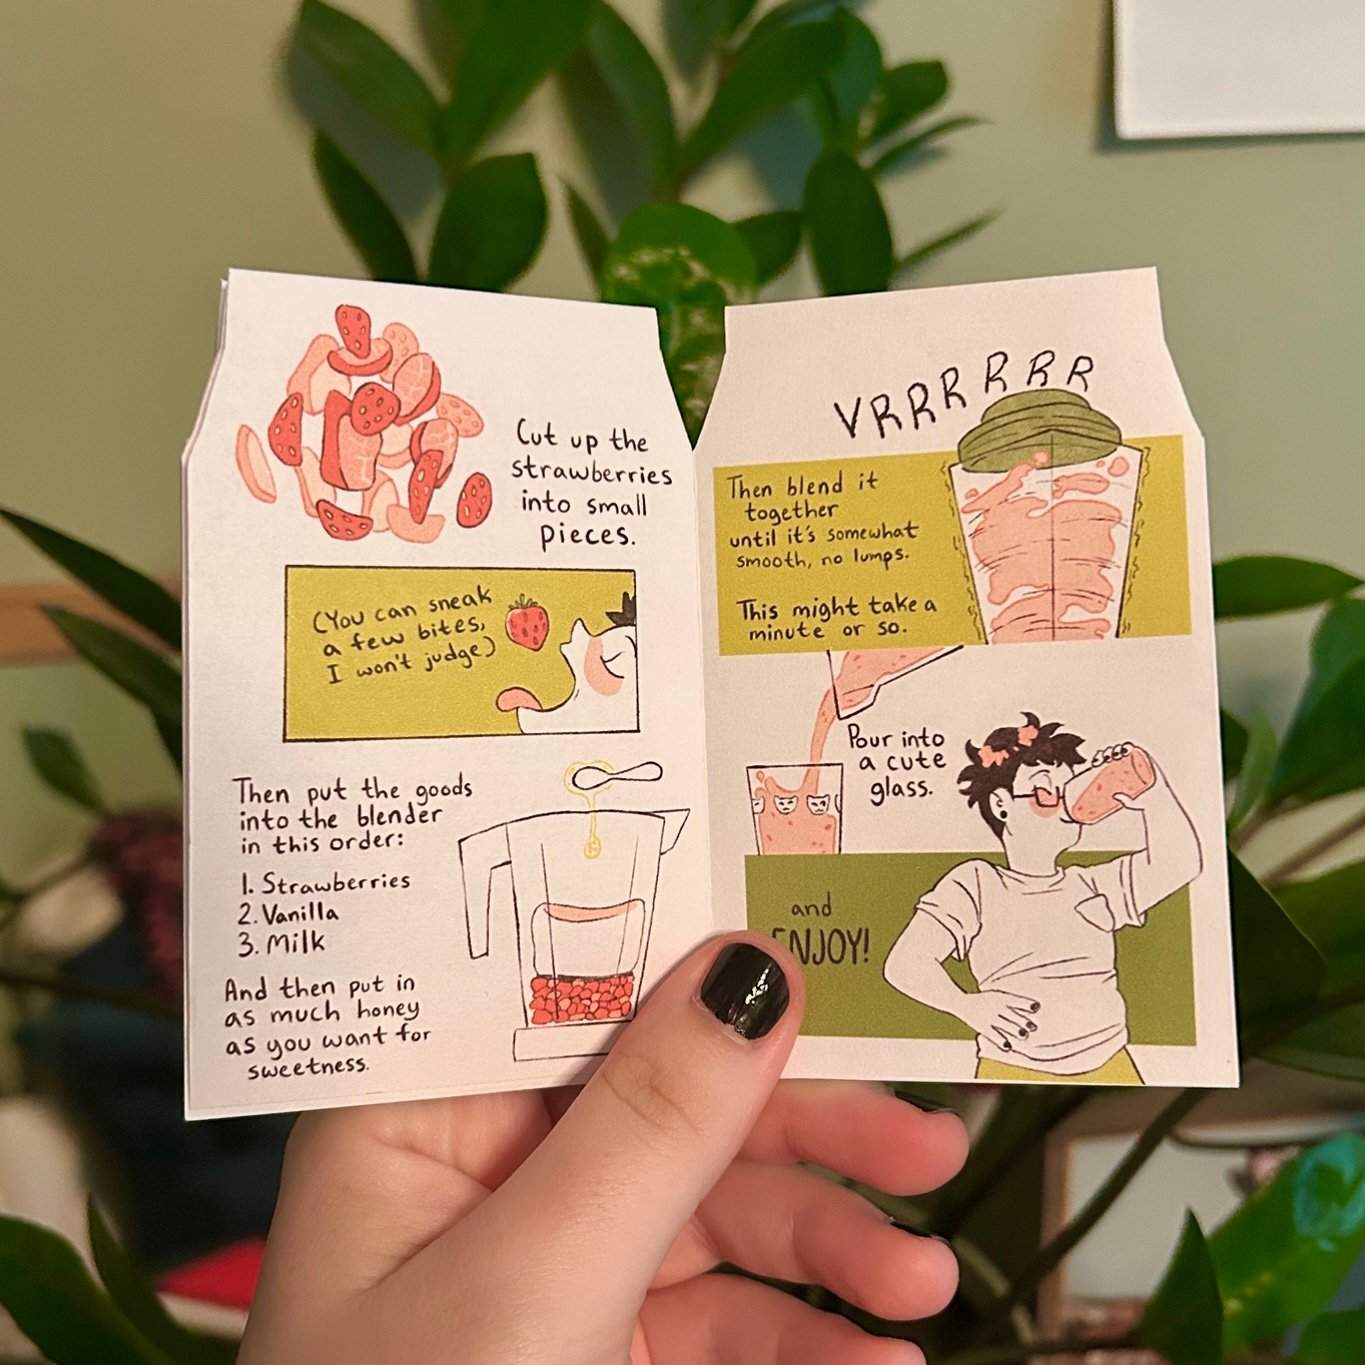 Cut up the
strawberries
into small
pieces.
(You can sneak
a few bites,
I won't judge)
Then put the goods
into the blender
in this order:
1. Strawberries
2. Vanilla
3. Milk
And then put in
as much honey
as you want for
sweetness.
VRRRRRR
Then blend it
together
until it's somewhat
smooth, no lumps.
This might take a
minute or so.
Pour into
a cute
glass.
and
ENJOY!